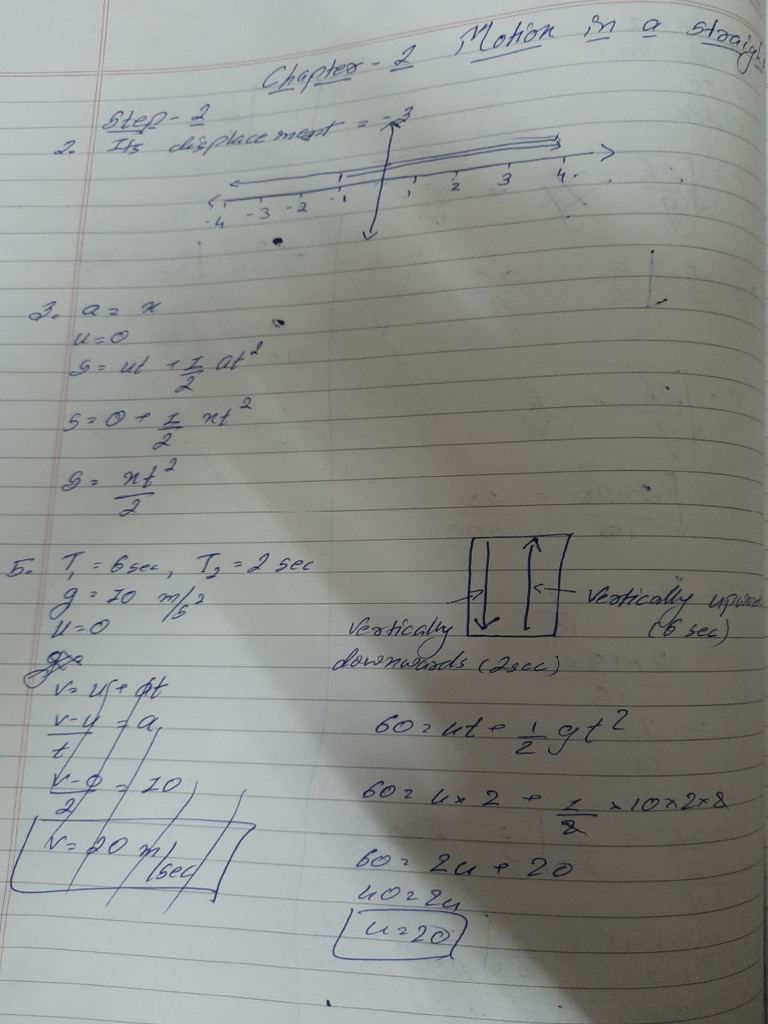 Chapter - 2 Motion in a straigh
Step - 2
2. Its displacement = -3
-4 -3 -2 -1 1 2 3 4
3. a = x
u = 0
s = ut + 1/2 at²
s = 0 + 1/2 xt²
s = xt²/2
5. T₁ = 6 sec, T₂ = 2 sec
g = 10 m/s²
u = 0
v = u + at
v-u/t = a
v-0/2 = 10
v = 20 m/sec
vertically upward
(6 sec)
vertically
downwards (2sec)
60 = ut + 1/2 gt²
60 = u × 2 + 1/2 × 10 × 2 × 2
60 = 2u + 20
40 = 2u
u = 20